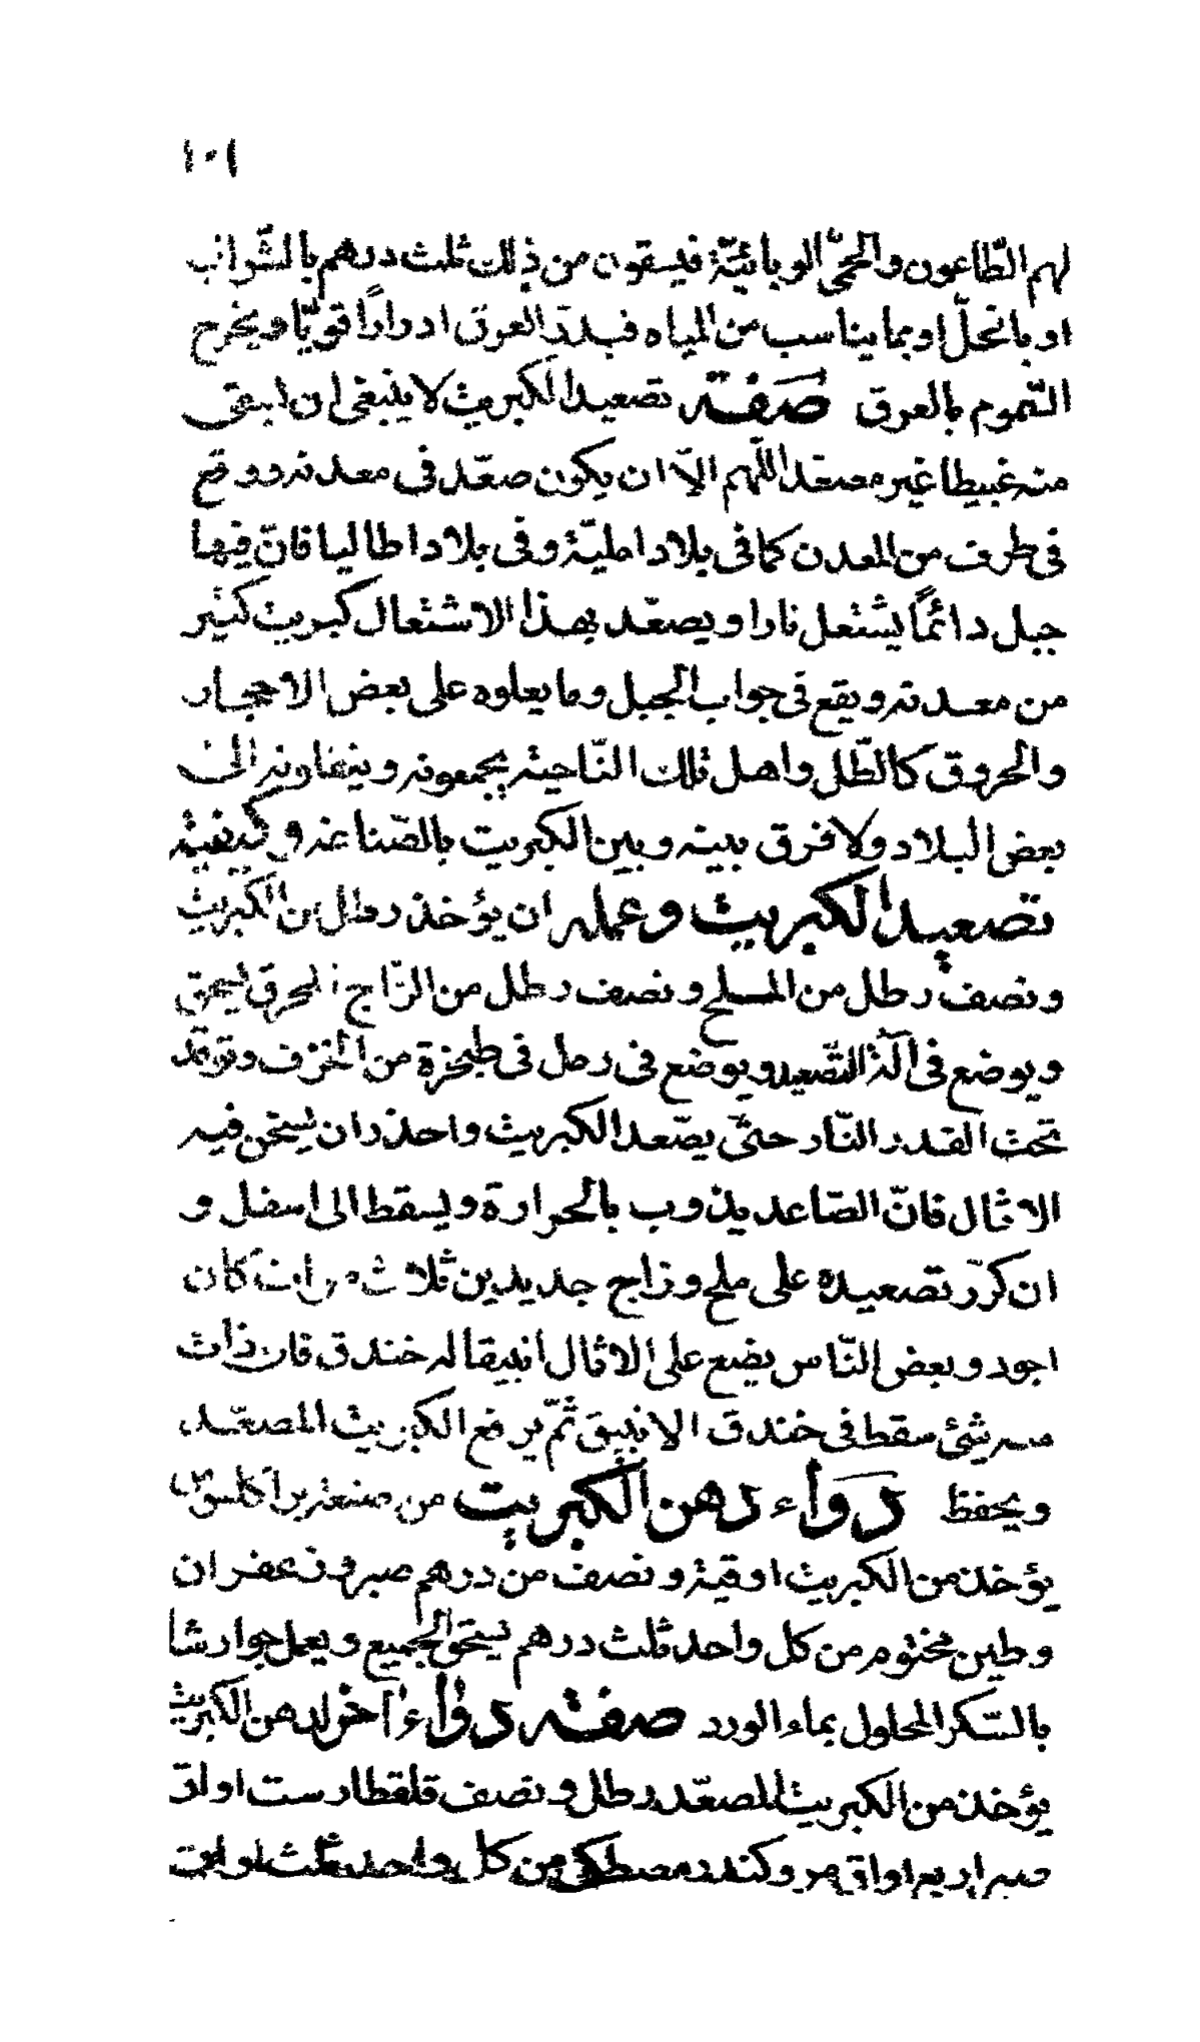 ١٠١
لهم الطّاعون والحمّى الوبائيّة فيسقون من ذلك ثلث درهم بالشّراب
او بالخلّ او بما يناسب من المياه فيدرّ العرق ادرارًا قويّا ويخرج
السّموم بالعرق صفة تصعيد الكبريت لا ينبغي ان يبقى
منه غبيطا غير مصعّد اللّهم الاّ ان يكون صعّد فى معدنه ووقع
فى طرف من المعدن كما فى بلاد املية وفى بلاد اطاليا فانّ فيها
جبل دائمًا يشتعل نارا ويصعّد بهذا الاشتعال كبريت كثير
من معدنه ويقع فى جواب الجبل وما يعلوه على بعض الاحجار
والحروق كالطّل واهل تلك النّاحية يجمعونه وينقلونه الى
بعض البلاد ولا فرق بينه وبين الكبريت بالصّناعة وكيفية
تصعيد الكبريت وعمله ان يؤخذ رطل من الكبريت
ونصف رطل من الملح ونصف رطل من الزّاج المحرق يسحق
ويوضع فى آلة التّصعيد ويوضع فى رمل فى طنجرة من الخزف وتوقد
تحت القدر النّار حتّى يصّعد الكبريت واحذر ان يسخن فيه
الاثال فانّ الصّاعد يذوب بالحرارة ويسقط الى اسفل و
ان كرّر تصعيده على ملح وزاج جديدين ثلاث مرات كان
اجود وبعض النّاس يضع على الاثال انبيقا له خندق فان ذاب
منه شئ سقط فى خندق الانبيق ثمّ يرفع الكبريت المصعّد
ويحفظ دواء دهن الكبريت من صنعة براكلسوس
يؤخذ من الكبريت اوقية ونصف من درهم صبر وزعفران
وطين مختوم من كل واحد ثلث درهم يسحق الجميع ويعمل جوارشا
بالسّكر المحلول بماء الورد صفة دواء آخر لدهن الكبريت
يؤخذ من الكبريت المصعّد رطل ونصف قلقطار ست اواق
صبر اربع اواق مر وكندر مصطكى من كل واحد ثلث اواق